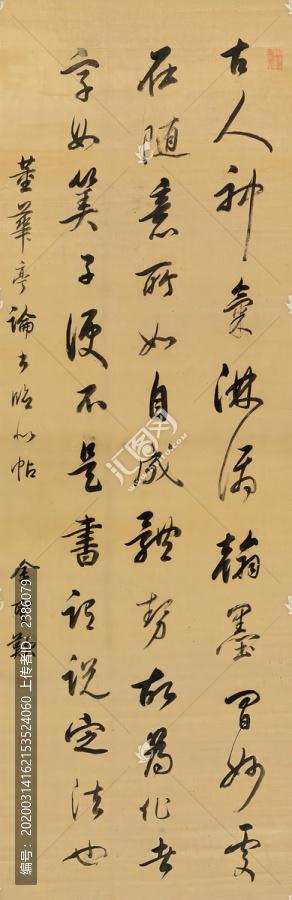 古人神氣淋漓翰墨間妙處
在随意所如自成體勢故為作者
字如筭子便不是書謂說定法也
董華亭論書臨似帖 金
汇图网
编号：20200314162153524060 上传者ID：2386079